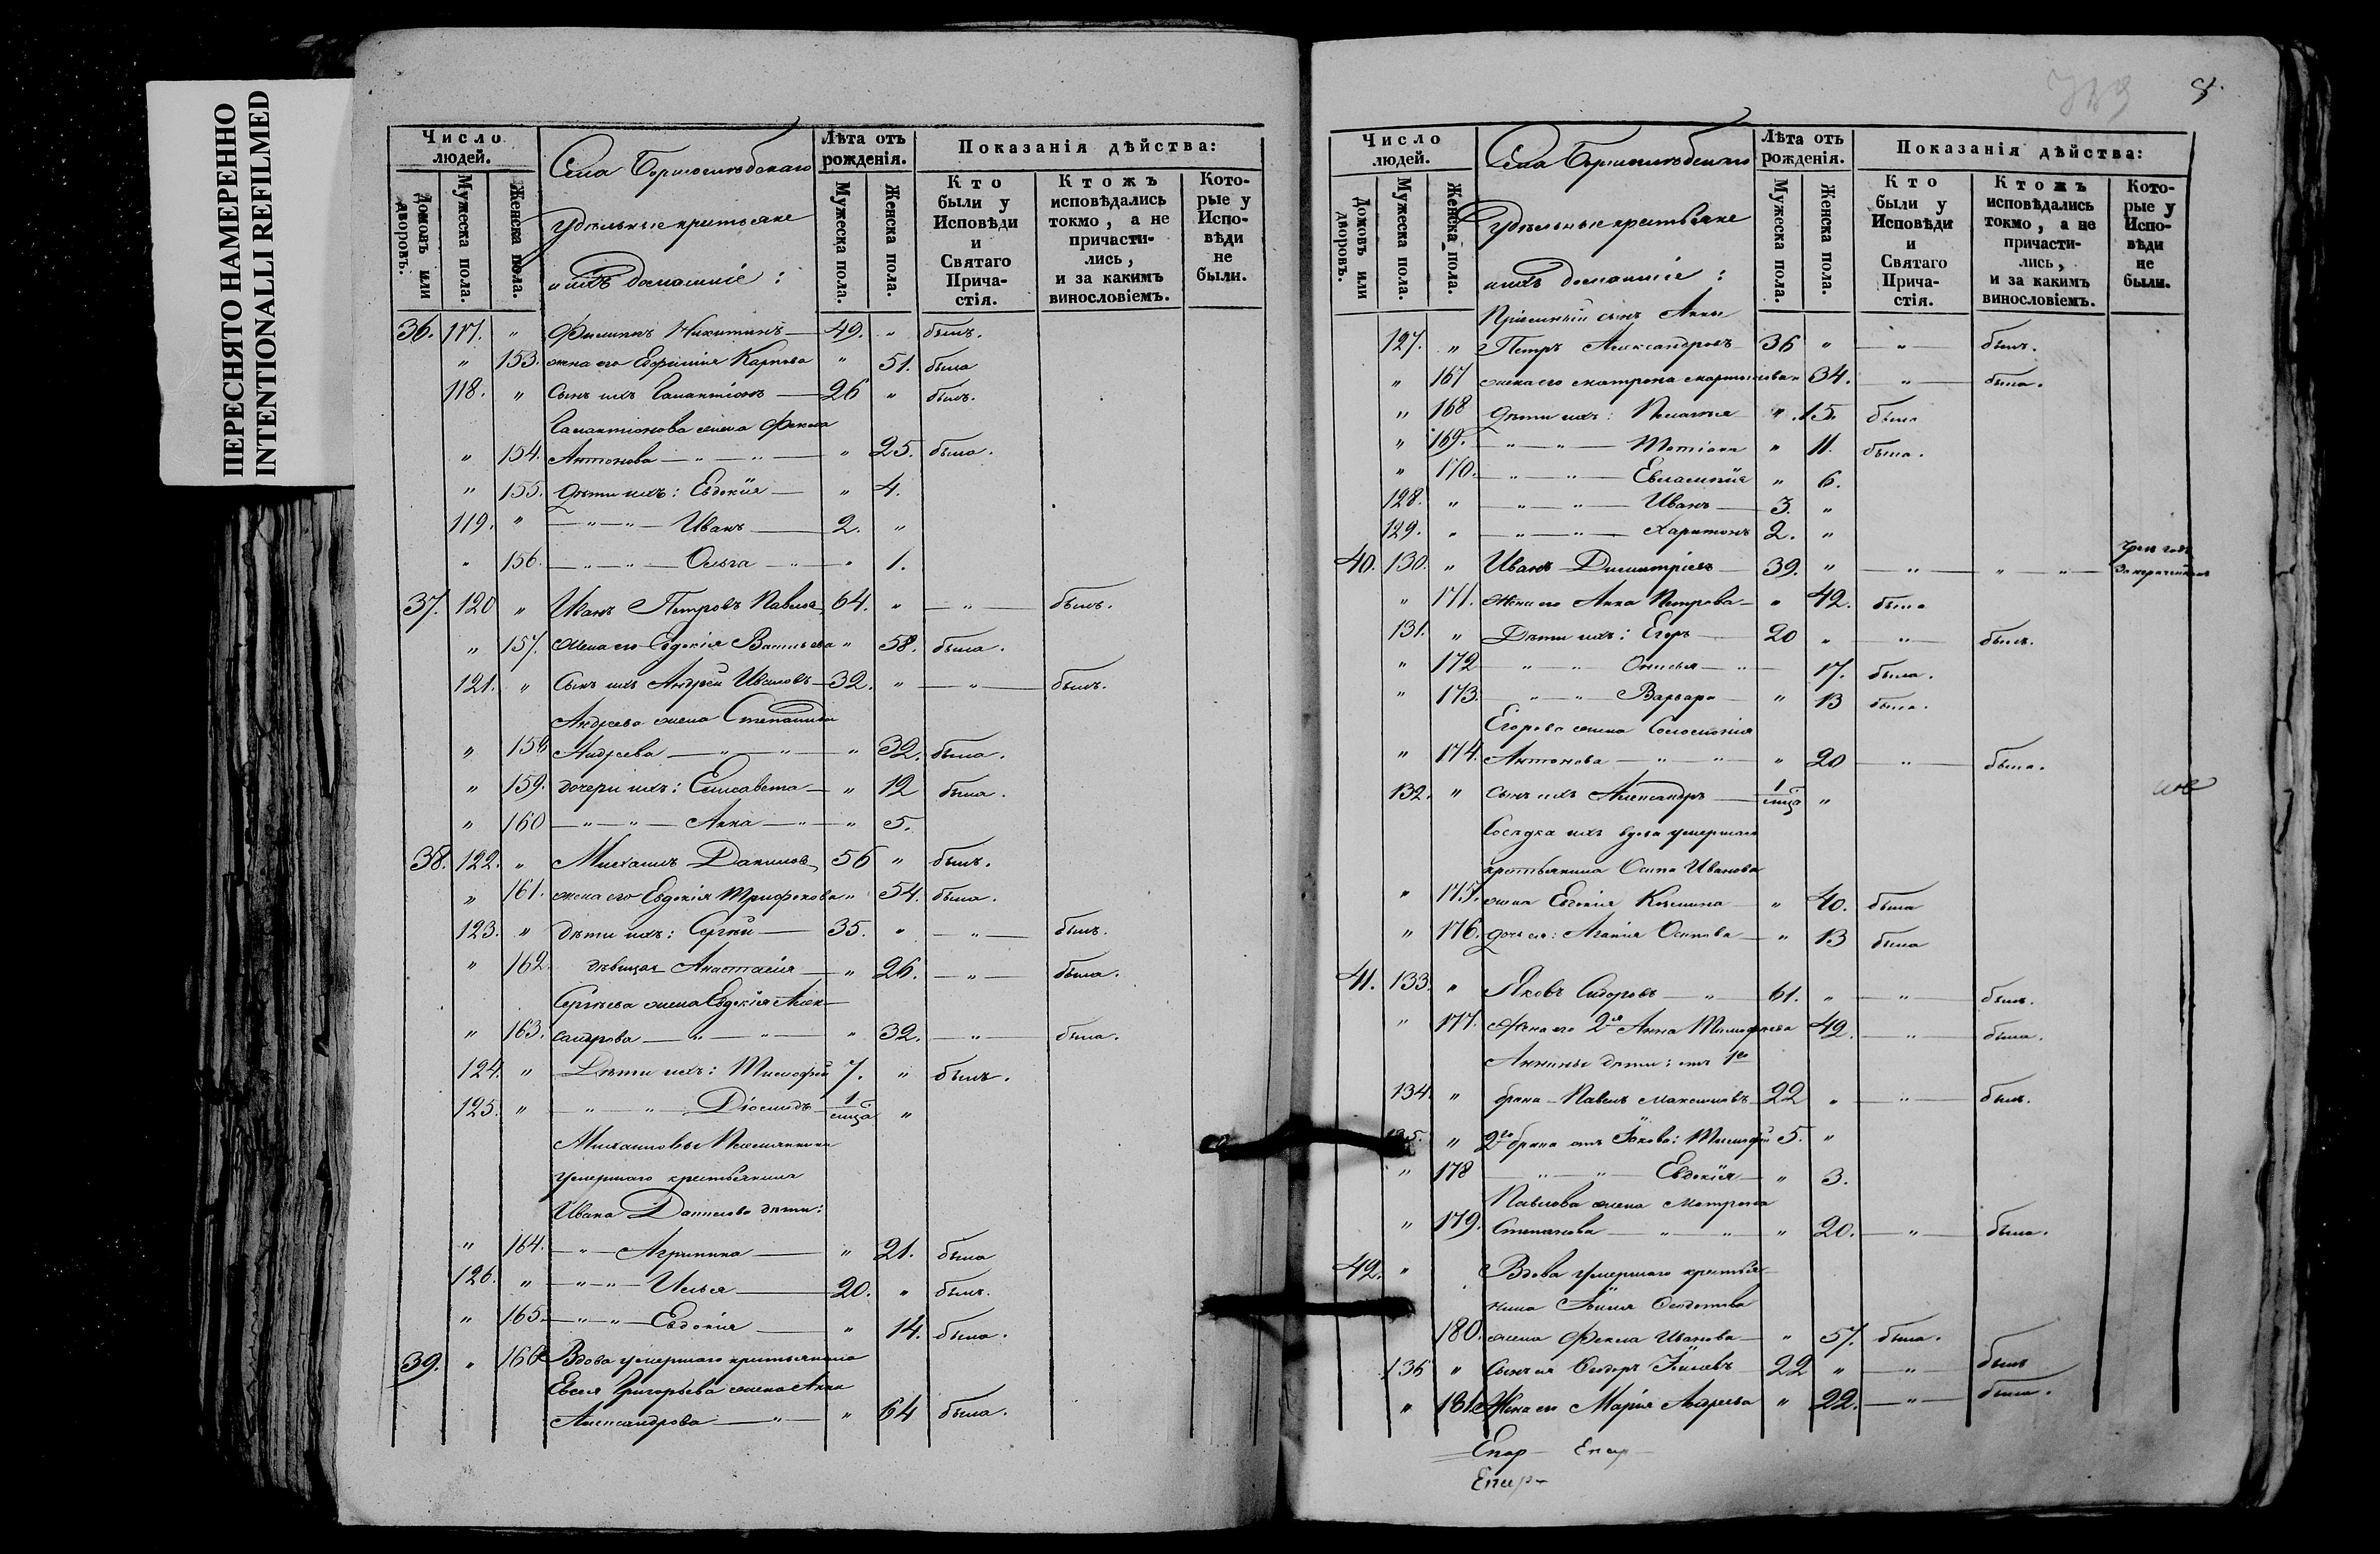 ПЕРЕСНЯТО НАМЕРЕННО
INTENTIONALLI REFILMED
Число людей.
Домовъ или дворовъ.
Мужеска пола.
Женска пола.
Села
удѣльные крестьяне
и ихъ домашніе:
Лѣта отъ рожденія.
Мужеска пола.
Женска пола.
Показанія дѣйства:
Кто были у Исповѣди и Святаго Причастія.
Ктожъ исповѣдались токмо, а не причастились, и за какимъ винословіемъ.
Которые у Исповѣди не были.
36. 117. " Филиппъ Никитинъ 49. " былъ.
" 153. жена его Евфимія Карпова " 51. была
118. " Сынъ ихъ Галактіонъ 26 " былъ.
Галактіонова жена Фекла
" 154. Антонова " 25. была.
" 155. Дѣти ихъ: Евдокія " 4.
119. " Иванъ 2. "
" 156. Ольга " 1.
37. 120 " Иванъ Петровъ 64. " " былъ.
" 157. жена его Евдокія Васильева " 58. была.
121. " Сынъ ихъ Андрей Ивановъ 32. " " былъ.
Андреева жена Степанида
" 158 Андреева " 32. была.
" 159. дочери ихъ: Елисавета " 12 была.
" 160 Анна " 5.
38. 122. " Михаилъ Даниловъ 56 " былъ.
" 161. жена его Евдокія Трифонова " 54. была.
123. " дѣти ихъ: Сергѣй 35. " " былъ.
" 162. дѣвица Анастасія " 26. " была.
Сергѣева жена Евдокія Алек-
" 163. сандрова " 32. " была.
124. " Дѣти ихъ: Тимофей 7. " былъ.
125. " Діомидъ 1 "
Михаиловы Племянники
умершаго крестьянина
Ивана Данилова дѣти:
" 164. Агрипина " 21. была
126. " Илья 20. " былъ.
" 165. Евдокія " 14. была.
39. " 166 Вдова умершаго крестьянина
Евсея Григорьева жена Анна
Александрова " 64 была.
Число людей.
Домовъ или дворовъ.
Мужеска пола.
Женска пола.
Села
Удѣльные крестьяне
и ихъ домашніе:
Лѣта отъ рожденія.
Мужеска пола.
Женска пола.
Показанія дѣйства:
Кто были у Исповѣди и Святаго Причастія.
Ктожъ исповѣдались токмо, а не причастились, и за какимъ винословіемъ.
Которые у Исповѣди не были.
Пріемный сынъ Анны
127. " Петръ Александровъ 36 " " былъ.
" 167 жена его Матрона " 34. " была.
" 168 Дѣти ихъ: Пелагея " 15. была
" 169. " 11. была.
" 170. Евлампія " 6.
128. " Иванъ 3. "
129. " Харитонъ 2. "
40. 130. " Иванъ Димитріевъ 39. " " " "
" 171. Жена его Анна Петрова " 42. была
131. " Дѣти ихъ: Егоръ 20 " " былъ.
" 172 Онисья 17. была.
" 173. Варвара " 13 была.
Егорова жена Соломонія
" 174. Антонова " 20 " была.
132. " Сынъ ихъ Александръ 1 "
Сосѣдка ихъ вдова умершаго
крестьянина Осипа Иванова
" 175. жена Евгенія " 40. была
" 176. дочь ея: Агафія Осипова " 13 была
41. 133. " Яковъ Сидоровъ 61. " " былъ.
" 177. Жена его 2я Анна Тимофеева 42. " была.
Аннины дѣти: отъ 1го
134. " брака Павелъ Максимовъ 22 " " былъ.
135. " 2го брака отъ Іакова: Тимофей 5. "
" 178 Евдокія " 3.
Павлова жена Матрона
" 179. Степанова " 20. " была.
42. " Вдова умершаго крестья-
нина
180. жена Фекла Иванова " 57. была.
136 " Сынъ ея Ѳедоръ 22 " " былъ
" 181. Жена его Марія Андреева " 22. " была.
Епар Епар
Епар